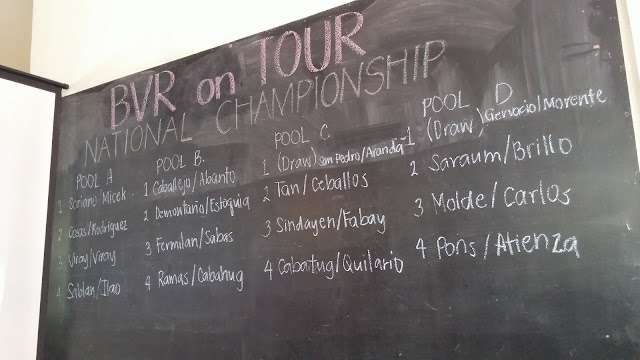 BVR on TOUR
NATIONAL CHAMPIONSHIP
POOL A
1 Soriano/Micek
2 Cosas/Rodriguez
3 Viray/Viray
4 Sablan/Ilao
POOL B.
1 Caballejo/Abanto
2 Demontaño/Estoquia
3 Fermilan/Sabas
4 Ramas/Cabahug
POOL C.
1 (Draw) San Pedro/Aranda
2 Tan/Ceballos
3 Sindayen/Fabay
4 Cabatug/Quilario
POOL D
1 (Draw) Gervacio/Morente
2 Saraum/Brillo
3 Molde/Carlos
4 Pons/Atienza